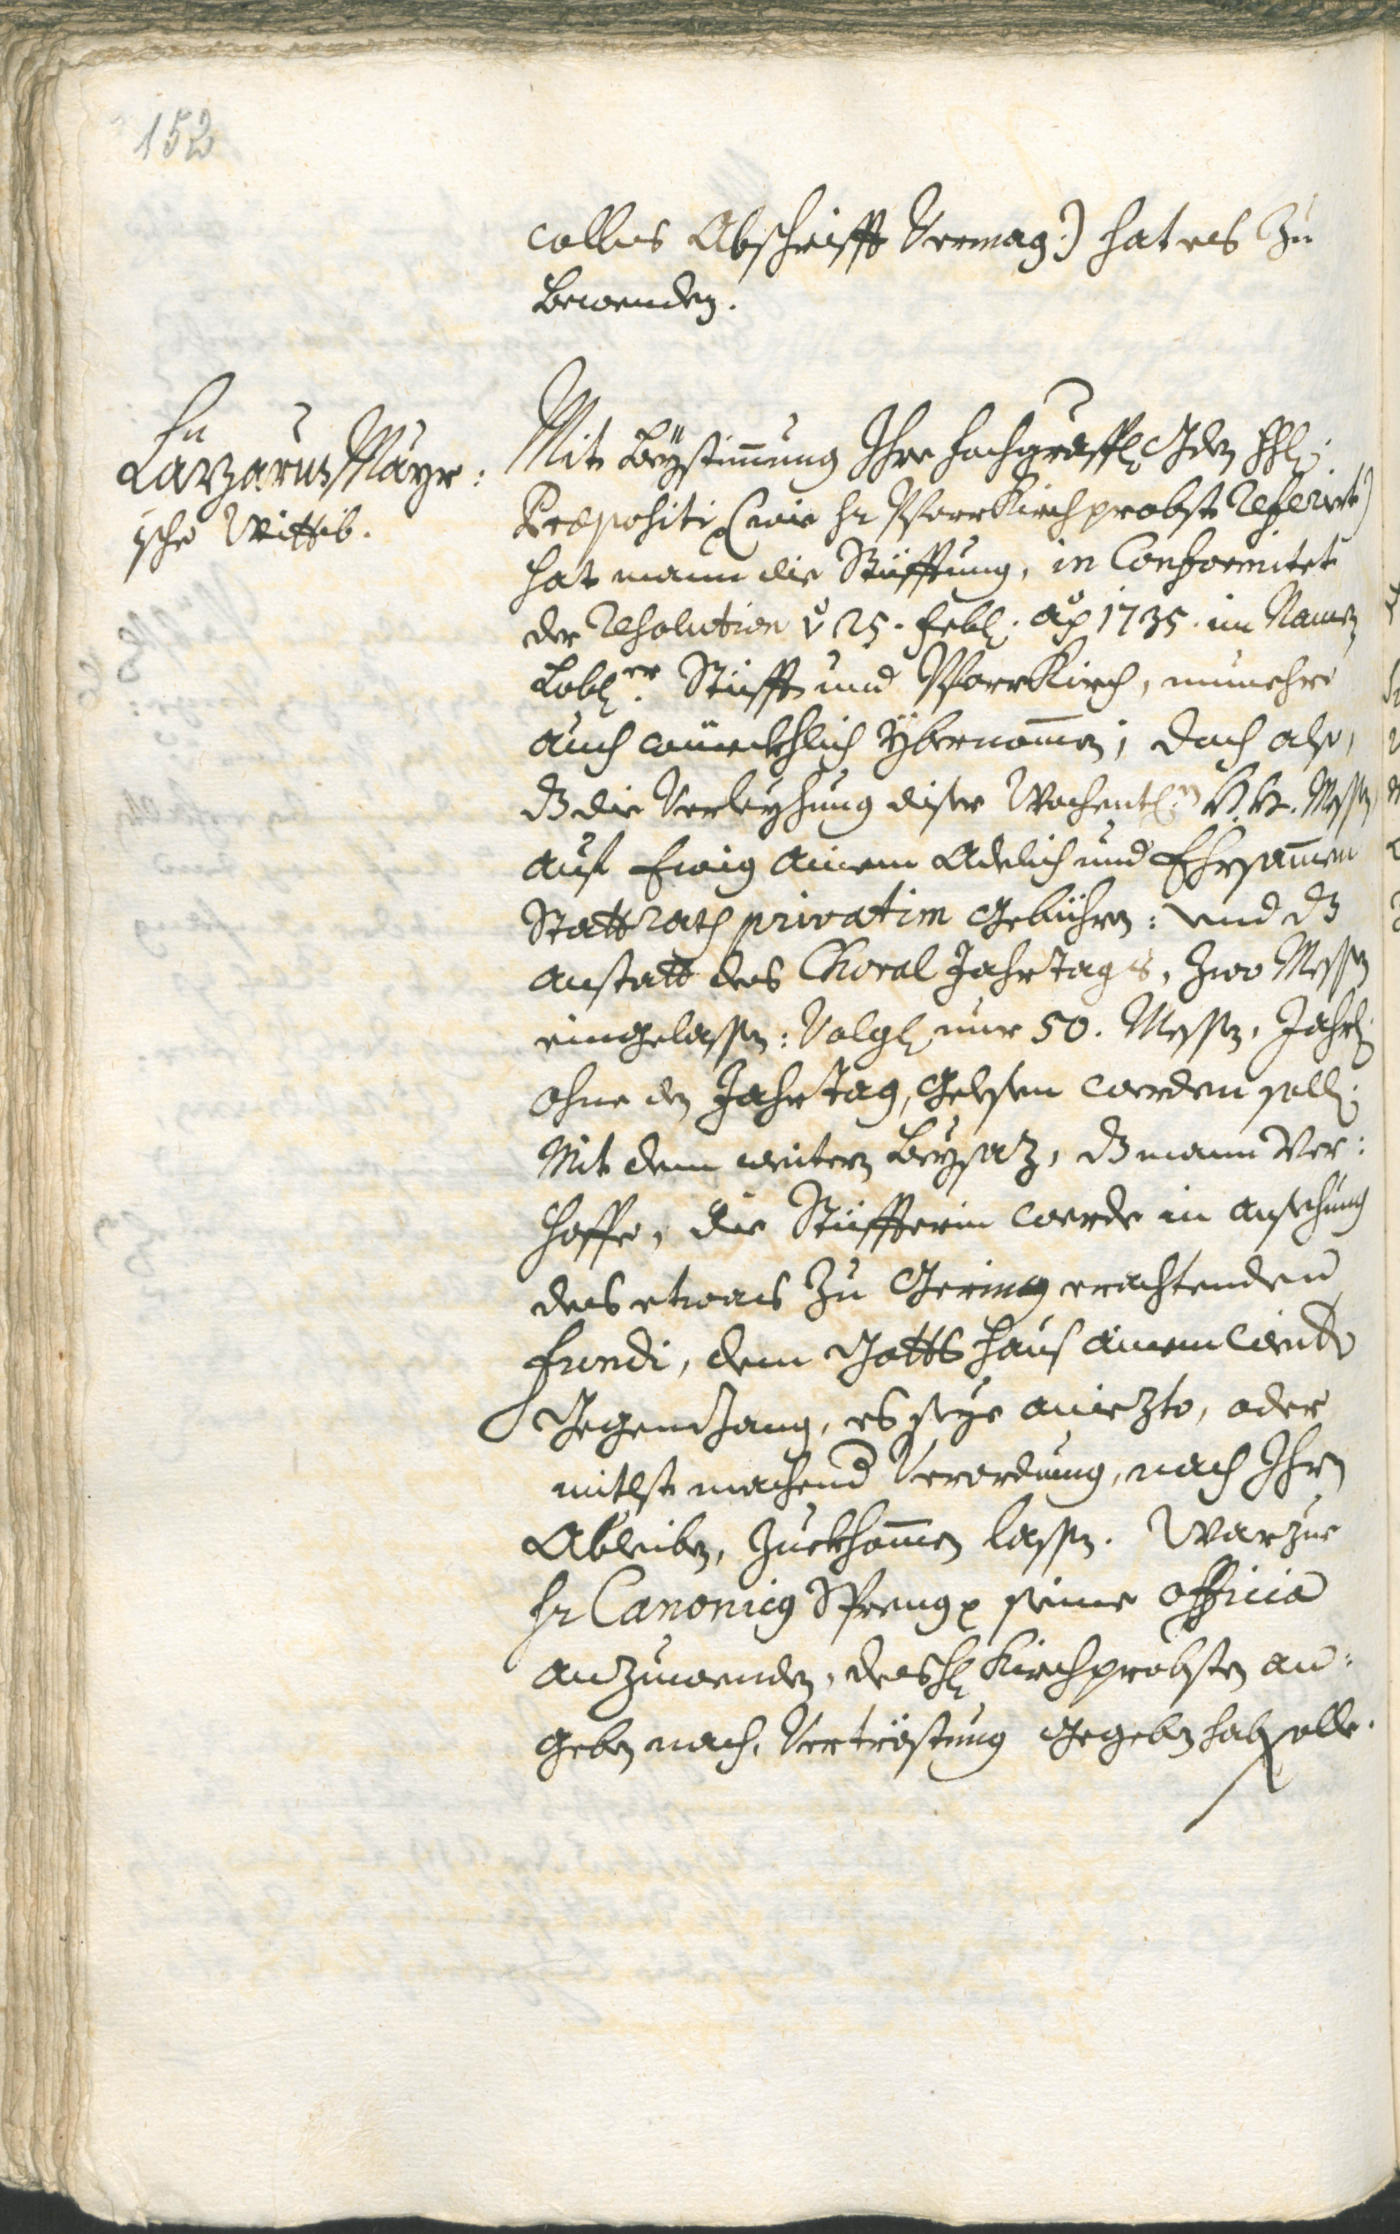 152
collus Abschrifft Vermag:) hat es Zu
bewenden.
Fr
Lazzarus Mayr:
ische Wittib.
Mit Beystim̄ung Ihro hochgräffl. Gden H
Præpositi (wie Hr PfarrKirchprobst Referirt)
hat mann die Stüfftung, in Conformitet
der Resolution v 25. Febr. aō 1735. im Namen
Löbl.er Stifft und PfarrKirch, nunmehro
auch würckhlich Ybernom̄en; doch also,
dz die Verleyhung diser Wochentl.n H. Messen
auf Ewig ainem Adelich und Ehrsam̄en
StattRath privatim gebühren: und dz
anstatt des Choral Jahrtags, zwo Messen
eingelassen: Volgl. nur 50. Messen, Jährl.
ohne den Jahrtag, gelesen werden soll;
Mit dem weitern Beysaz, dz mann Ver:
hoffe, die Stüffterin werde in ansechung
des etwas zu Gering erachtenden
Fundi, dem Gottshaus ainem
Gegendzang, es seye aniezto, oder
mitlst machend Verordnung, nach Ihrn
Ableiben, zuekhom̄en lassen. Warzue
Hr Canonicus Spreng seine officia
anzuwenden, des H. Kirchprobsten an:
geben nach, Vertröstung gegeben haben solle.